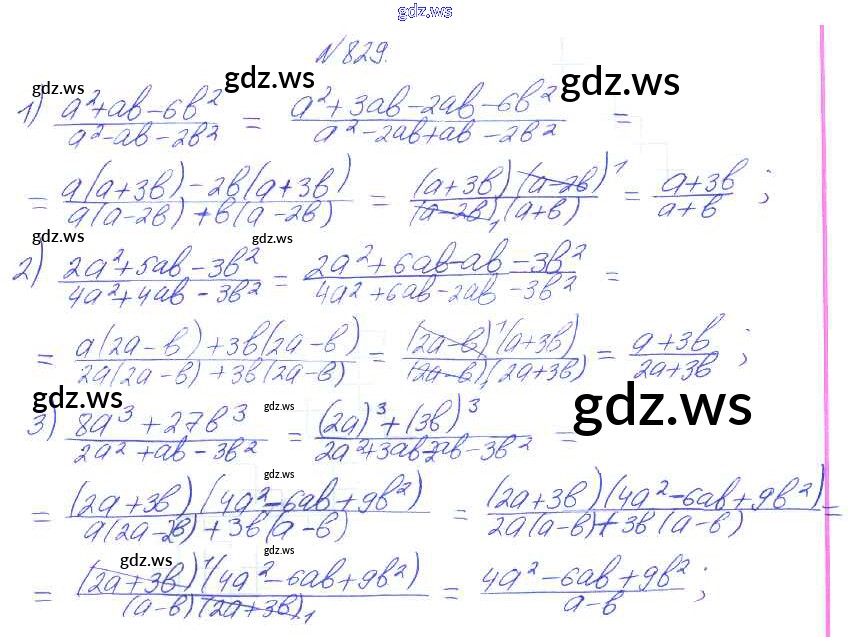 gdz.ws
N 829.
gdz.ws gdz.ws gdz.ws
1) (a²+ab-6b²)/(a²-ab-2b²) = (a²+3ab-2ab-6b²)/(a²-2ab+ab-2b²) =
= (a(a+3b)-2b(a+3b))/(a(a-2b)+b(a-2b)) = ((a+3b)(a-2b)¹)/((a-2b)₁(a+b)) = (a+3b)/(a+b) ;
gdz.ws gdz.ws
2) (2a²+5ab-3b²)/(4a²+4ab-3b²) = (2a²+6ab-ab-3b²)/(4a²+6ab-2ab-3b²) =
= (a(2a-b)+3b(2a-b))/(2a(2a-b)+3b(2a-b)) = ((2a-b)¹(a+3b))/((2a-b)₁(2a+3b)) = (a+3b)/(2a+3b) ;
gdz.ws gdz.ws gdz.ws
3) (8a³+27b³)/(2a²+ab-3b²) = ((2a)³+(3b)³)/(2a²+3ab-2ab-3b²) =
gdz.ws
= ((2a+3b)(4a²-6ab+9b²))/(a(2a-2b)+3b(a-b)) = ((2a+3b)(4a²-6ab+9b²))/(2a(a-b)+3b(a-b)) =
gdz.ws gdz.ws
= ((2a+3b)¹(4a²-6ab+9b²))/((a-b)(2a+3b)₁) = (4a²-6ab+9b²)/(a-b) ;